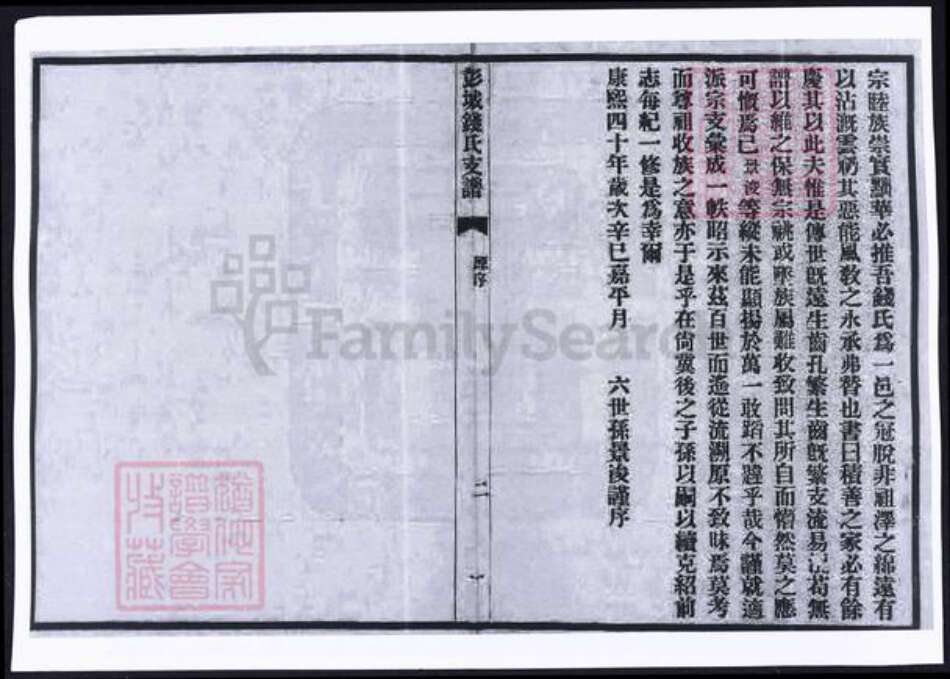 宗睦族崇實黜華必推吾錢氏為一邑之冠脫非祖澤之綿遠有
以沾溉雲礽其惡能風敎之永承弗替也書曰積善之家必有餘
慶其以此夫惟是傳世旣遠生齒孔繁生齒旣繁支流易苟無
譜以維之保無宗祧或墜族屬難收致問其所自而懵然莫之應
可慨焉已景浚等縱未能顯揚於萬一敢蹈不韙乎哉今謹就適
派宗支彙成一帙昭示來茲百世而遙從流溯原不致昧焉莫考
而尊祖收族之意亦于是乎在尙冀後之子孫以嗣以續克紹前
志每紀一修是為幸爾
康熙四十年歲次辛巳嘉平月 六世孫景浚謹序
彭城錢氏支譜 原序 二
FamilySearch
猶他家
譜學會
收藏